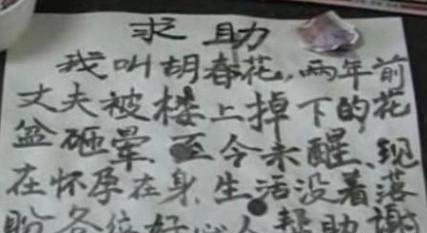 求助
我叫胡春花,两年前
丈夫被楼上掉下的花
盆砸晕、至今未醒、现
在怀孕在身,生活没着落
盼各位好心人帮助谢